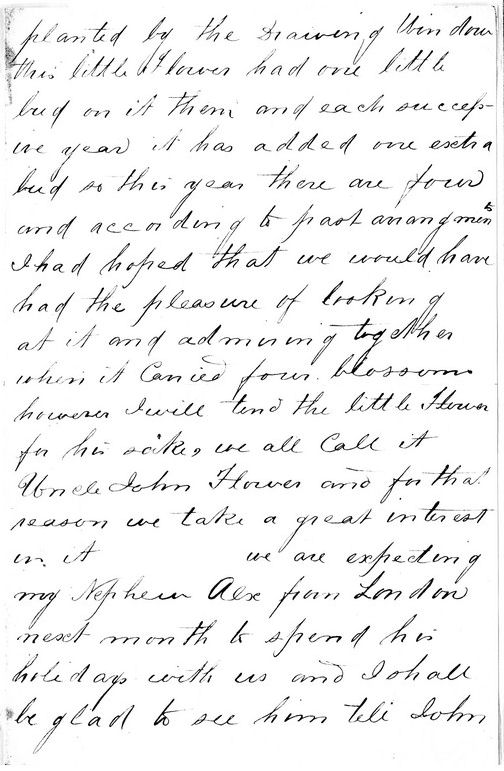 planted by the Drawing Window
this little Flower had one little
bud on it then and each success-
ive year it has added one extra
bud so this year there are four
and according to past arrangment
I had hoped that we would have
had the pleasure of looking
at it and admiring together
when it Carried four blossoms
however I will tend the little Flower
for his sake, we all Call it
Uncle John Flower and for that
reason we take a great interest
in it we are expecting
my Nephew Alex from London
next month to spend his
holidays with us and I shall
be glad to see him tell John